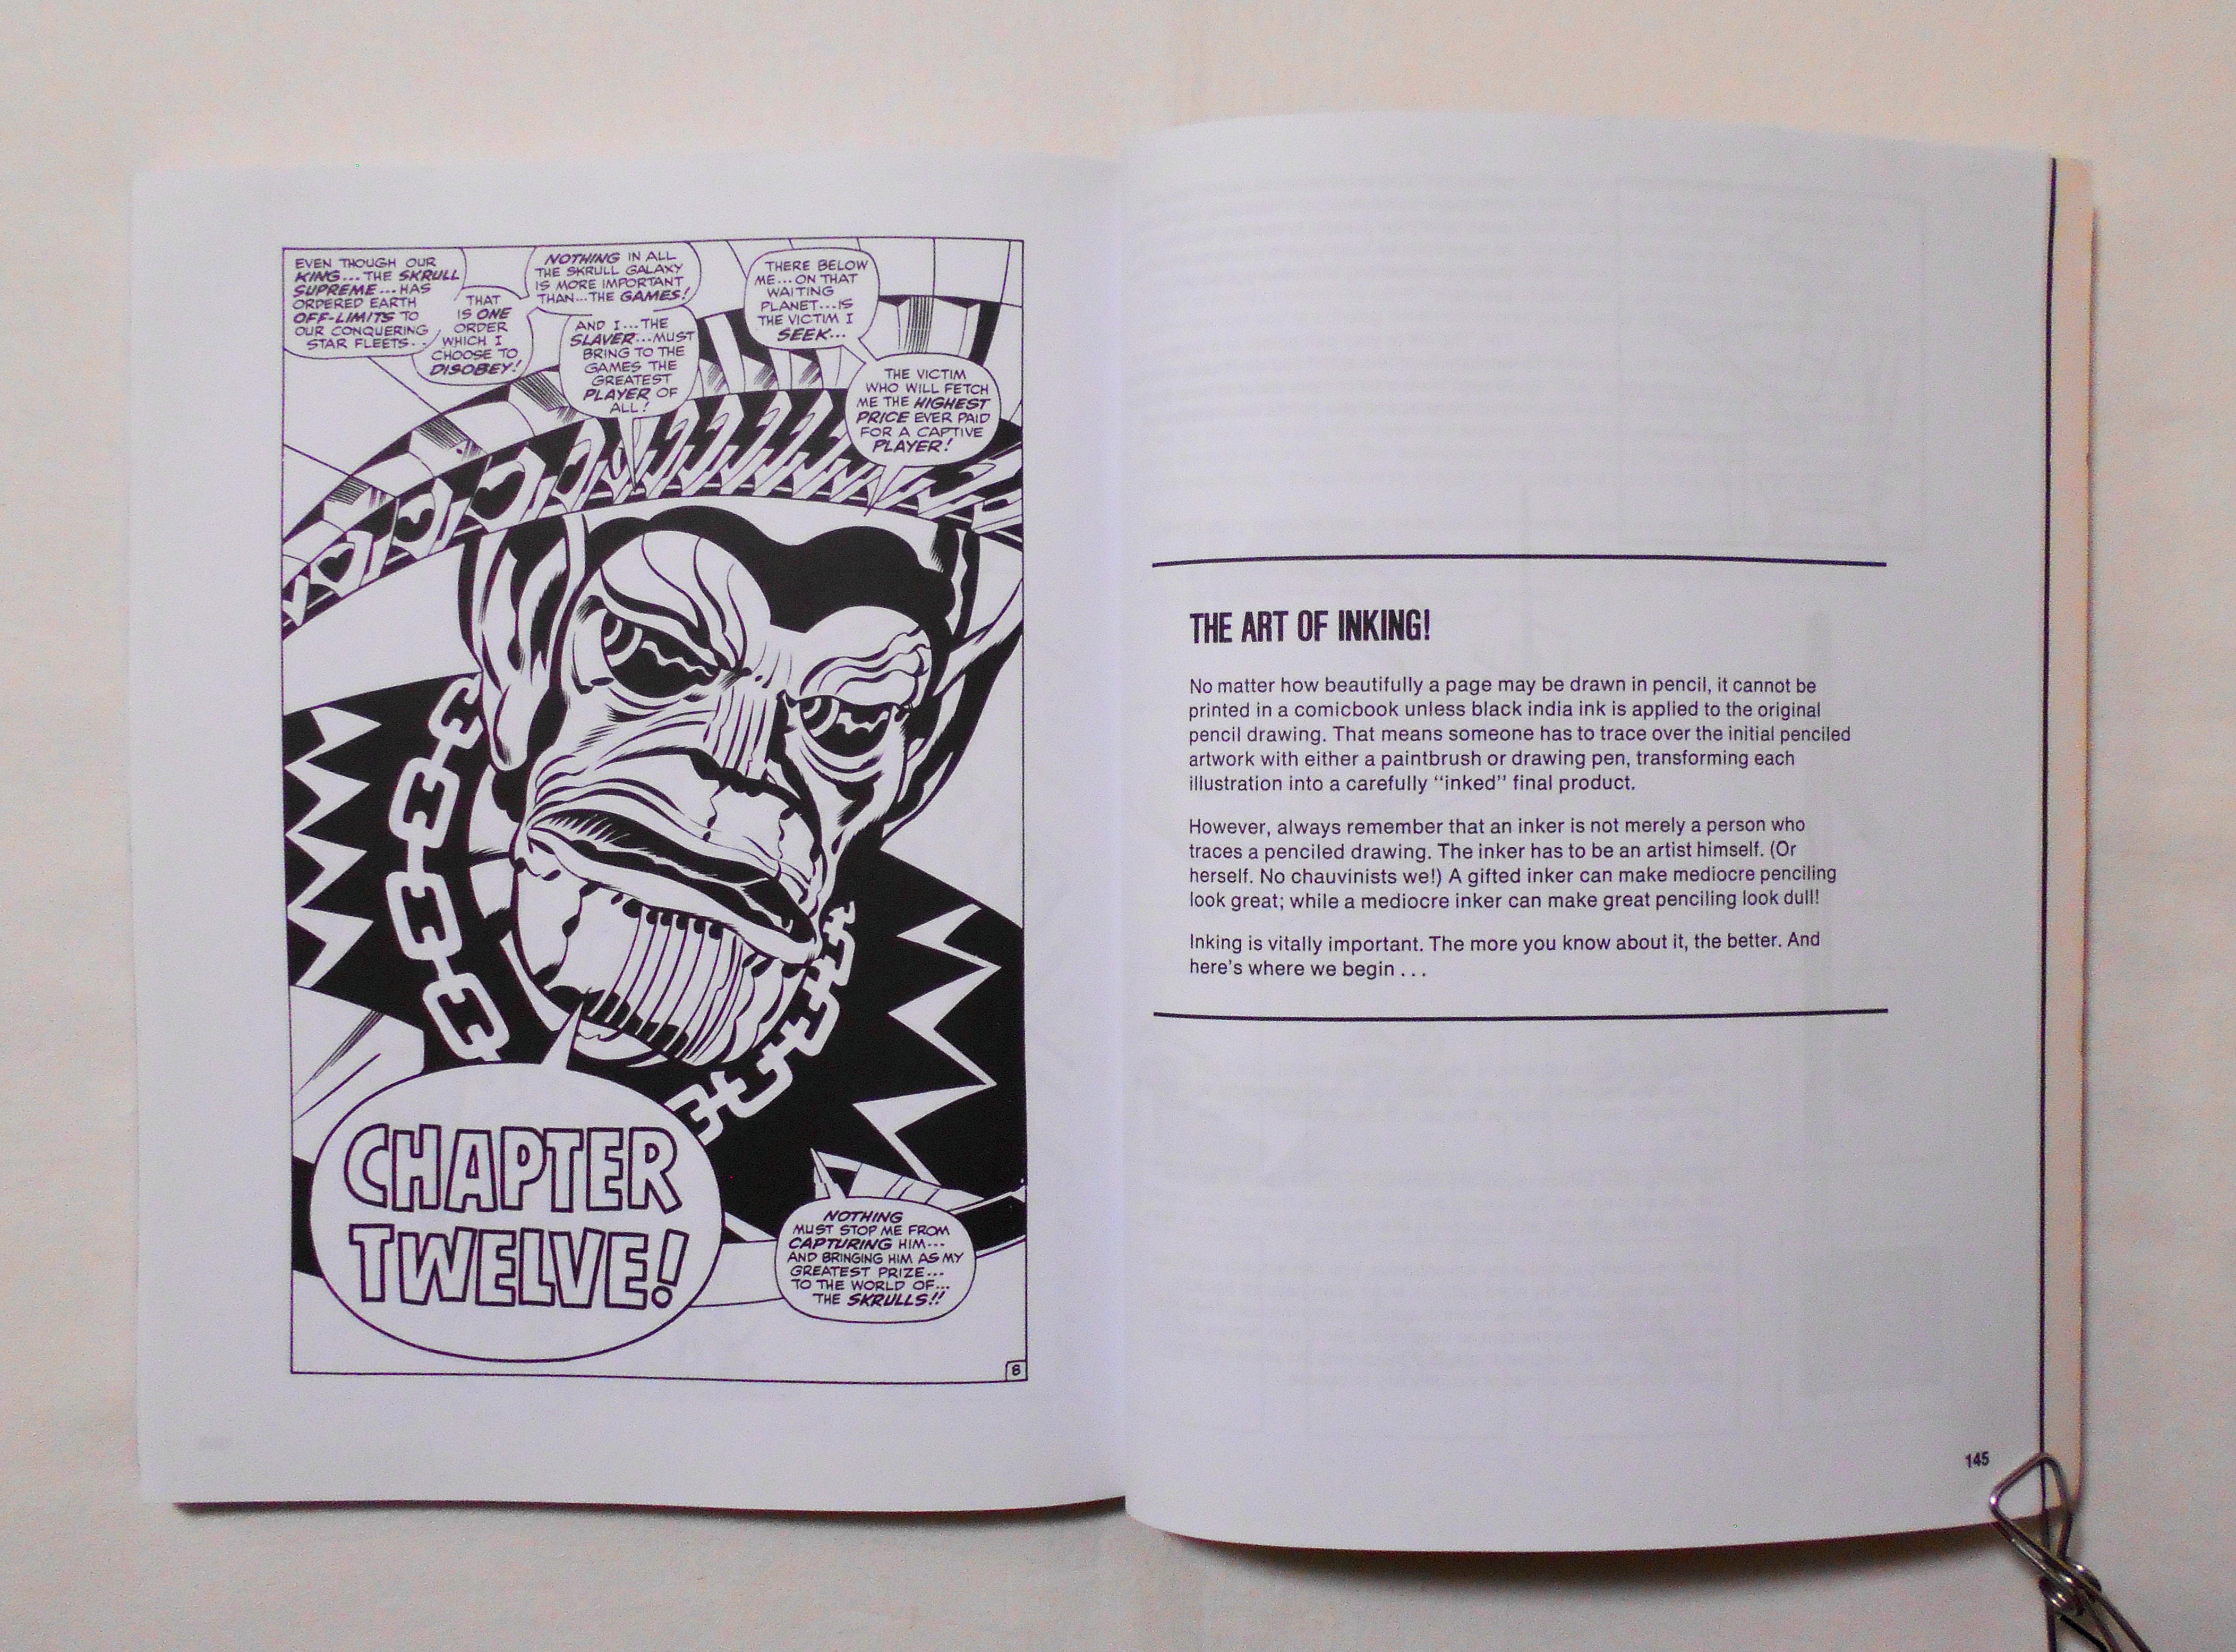 EVEN THOUGH OUR
KING...THE SKRULL
SUPREME...HAS
ORDERED EARTH
OFF-LIMITS TO
OUR CONQUERING
STAR FLEETS..
THAT
IS ONE
ORDER
WHICH I
CHOOSE TO
DISOBEY!
NOTHING IN ALL
THE SKRULL GALAXY
IS MORE IMPORTANT
THAN...THE GAMES!
AND I...THE
SLAVER...MUST
BRING TO THE
GAMES THE
GREATEST
PLAYER OF
ALL!
THERE BELOW
ME...ON THAT
WAITING
PLANET...IS
THE VICTIM I
SEEK...
THE VICTIM
WHO WILL FETCH
ME THE HIGHEST
PRICE EVER PAID
FOR A CAPTIVE
PLAYER!
CHAPTER
TWELVE!
NOTHING
MUST STOP ME FROM
CAPTURING HIM---
AND BRINGING HIM AS MY
GREATEST PRIZE...
TO THE WORLD OF...
THE SKRULLS!!
8
THE ART OF INKING!
No matter how beautifully a page may be drawn in pencil, it cannot be
printed in a comicbook unless black india ink is applied to the original
pencil drawing. That means someone has to trace over the initial penciled
artwork with either a paintbrush or drawing pen, transforming each
illustration into a carefully “inked” final product.
However, always remember that an inker is not merely a person who
traces a penciled drawing. The inker has to be an artist himself. (Or
herself. No chauvinists we!) A gifted inker can make mediocre penciling
look great; while a mediocre inker can make great penciling look dull!
Inking is vitally important. The more you know about it, the better. And
here's where we begin . . .
145